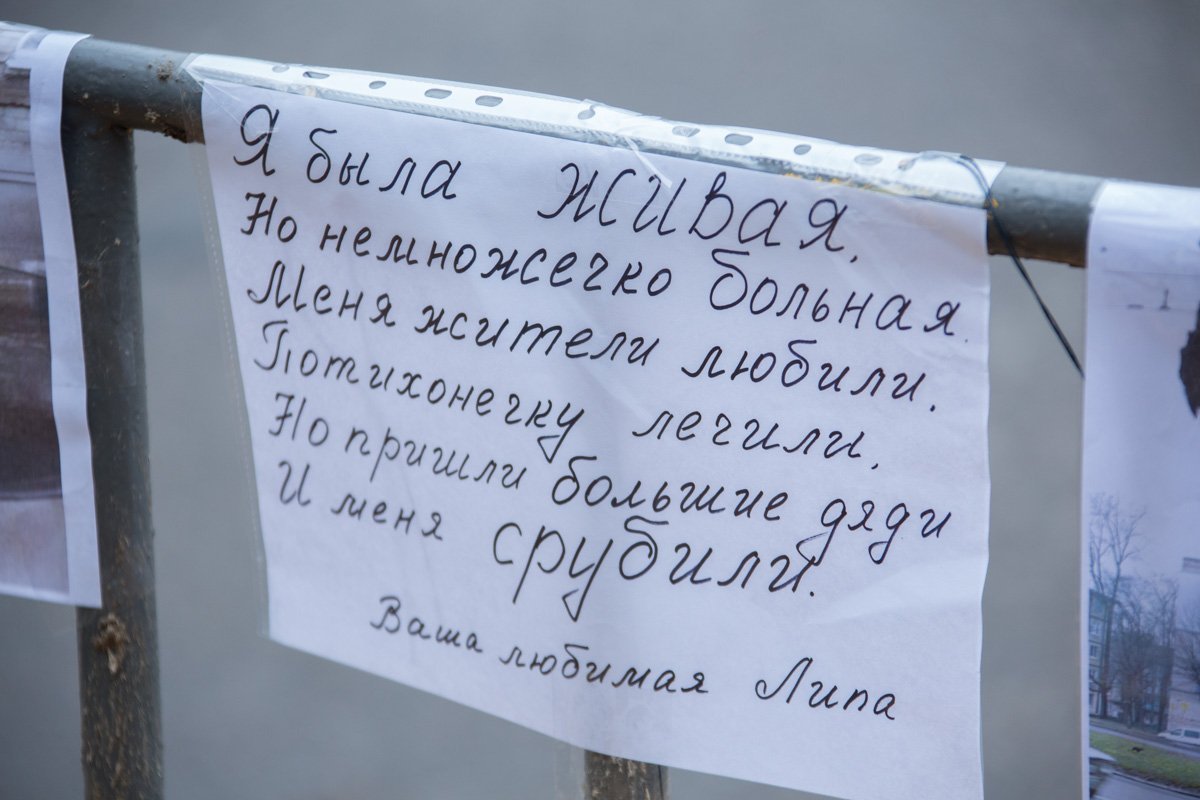 Я была живая,
Но немножечко больная.
Меня жители любили.
Потихонечку лечили,
Но пришли большие дяди
И меня срубили.
Ваша любимая Липа